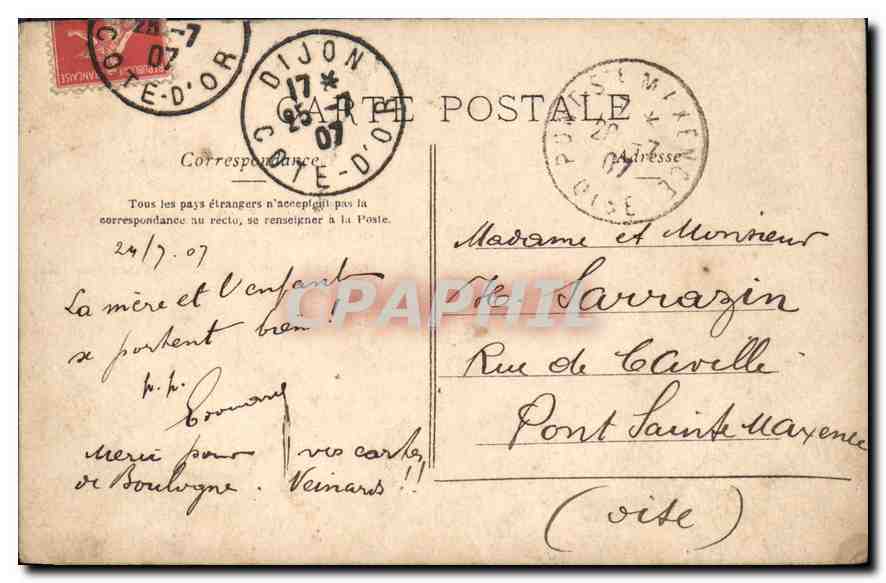 25 -7
07
COTE-D'OR
REPUBLIQUE FRANÇAISE
DIJON
17 *
25 -7
07
COTE-D'OR
PONT-STE MAXENCE
*
26 -7
07
OISE
CARTE POSTALE
Correspondance
Adresse
Tous les pays étrangers n'acceptent pas la
correspondance au recto, se renseigner à la Poste.
24/7.07
La mère et l'enfant
se portent bien !
p.p.
Edouard
Merci pour vos cartes
de Boulogne. Veinards !!
Madame et Monsieur
H. Sarrazin
Rue de Cavillé
Pont Sainte Maxence
(Oise)
CPAPHIL